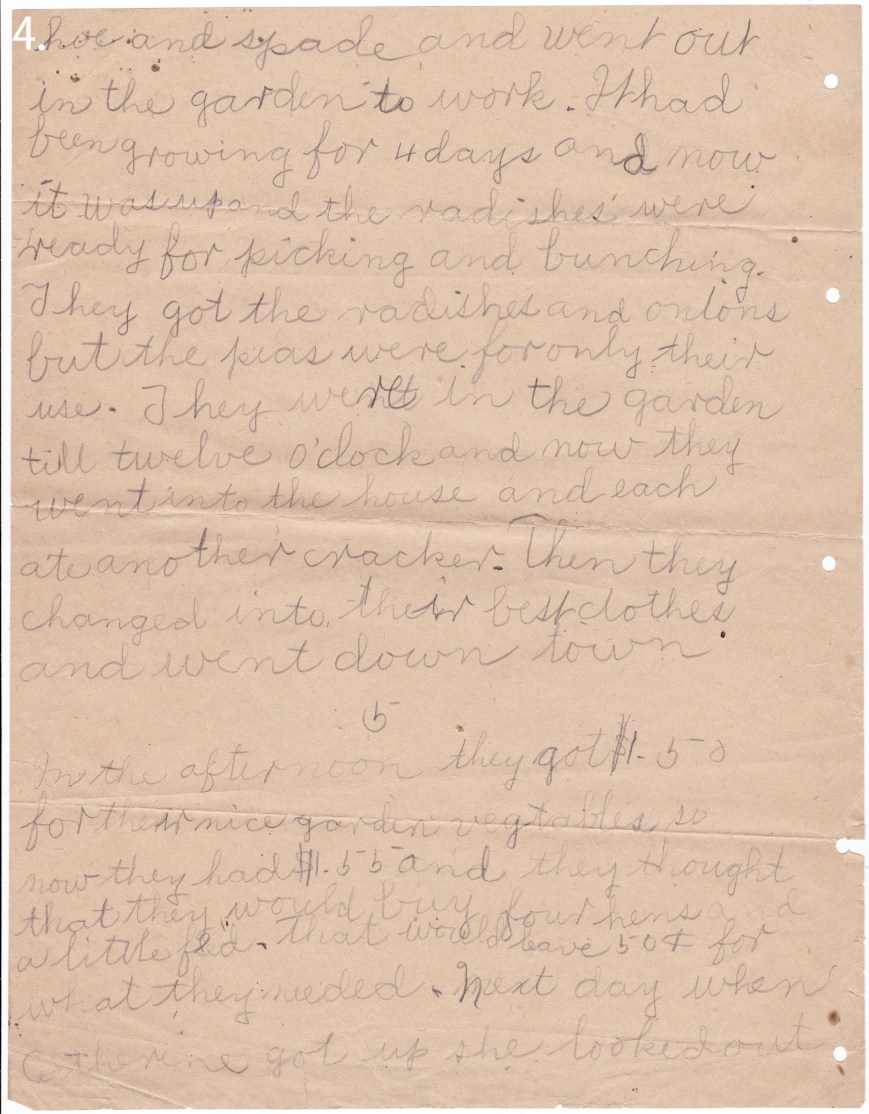 4.
hoe and spade and went out
in the garden to work. It had
been growing for 4 days and now
it was up and the radishes were
ready for picking and bunching.
They got the radishes and onions
but the peas were for only their
use. They were in the garden
till twelve o'clock and now they
went into the house and each
ate another cracker. Then they
changed into their best clothes
and went down town.
5
In the afternoon they got $1.50
for their nice garden vegtables so
now they had $1.55 and they thought
that they would buy four hens and
a little feed. that would leave 50¢ for
what they needed. Next day when
Catherine got up she looked out